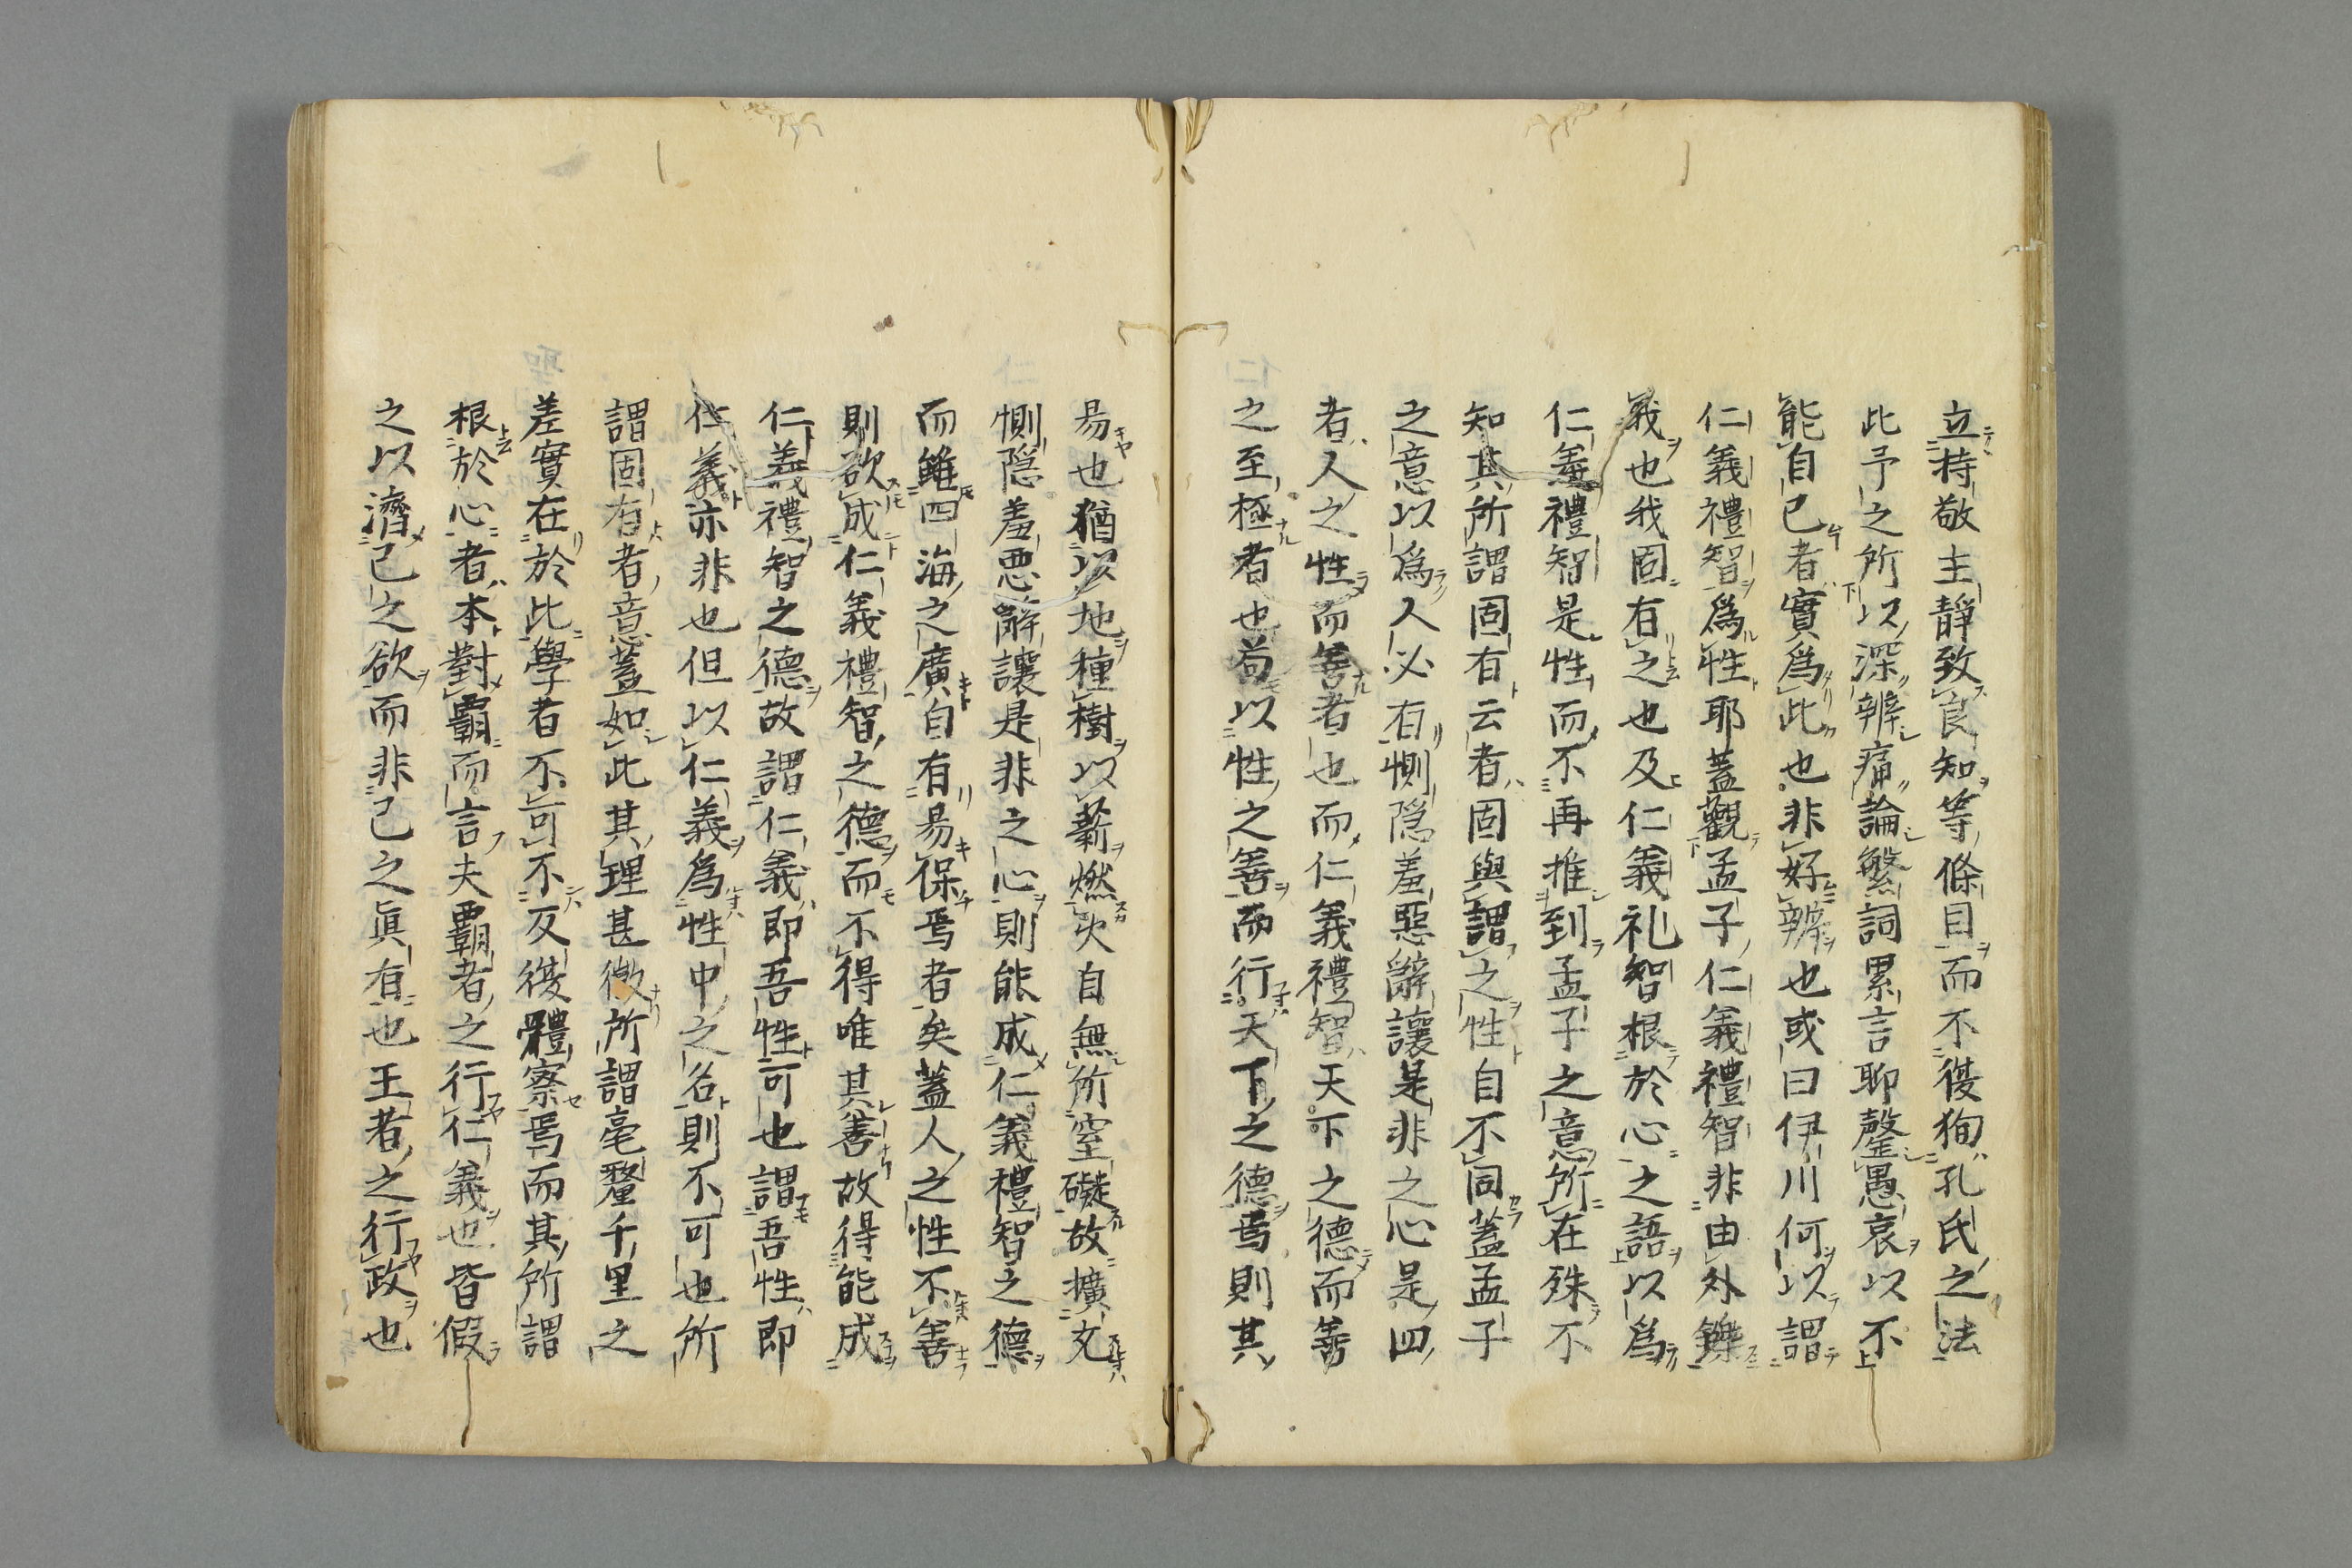 立持敬主靜致良知等條目而不復狥孔氏之法
此予之所以深辨痛論繁詞累言聊罄愚衷以不
能自已者實爲此也非好辨也或曰伊川何以謂
仁義禮智爲性耶蓋觀孟子仁義禮智非由外鑠
我也我固有之也及仁義礼智根於心之語以爲
仁義禮智是性而不再推到孟子之意所在殊不
知其所謂固有云者固與謂之性自不同蓋孟子
之意以爲人必有惻隠羞惡辭讓是非之心是四
者人之性而善者也而仁義禮智天下之德而善
之至極者也苟以性之善而行天下之德焉則其
易也猶以地種樹以薪燃火自無所窒礙故擴充
惻隠羞悪辭讓是非之心則能成仁義禮智之德
而雖四海之廣自有易保焉者矣蓋人之性不善
則欲成仁義禮智之德而不得唯其善故得能成
仁義禮智之德故謂仁義即吾性可也謂吾性即
仁義亦非也但以仁義爲性中之名則不可也所
謂固有者意蓋如此其理甚微所謂毫釐千里之
差實在於此學者不可不反復體察焉而其所謂
根於心者本對霸而言夫霸者之行仁義也皆假
之以濟己之欲而非己之眞有也王者之行政也